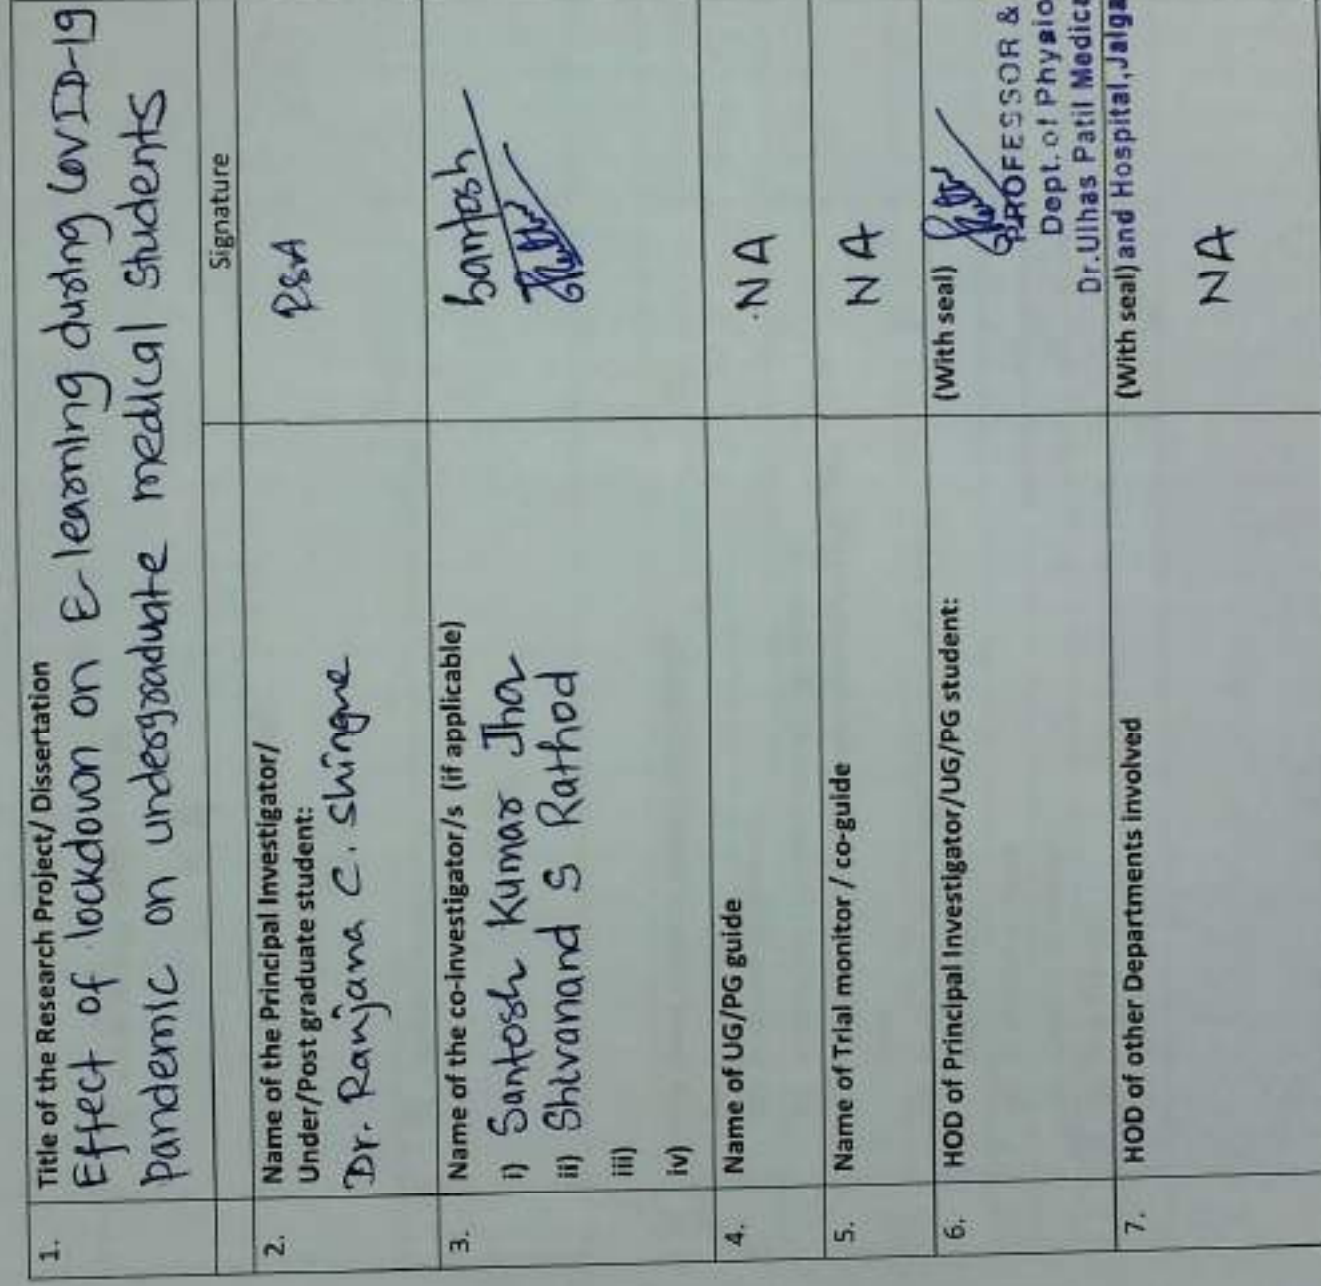 1. Title of the Research Project/ Dissertation
Effect of lockdown on E-learning during COVID-19
pandemic on undergraduate medical students
Signature
2. Name of the Principal Investigator/
Under/Post graduate student:
Dr. Ranjana C. Shingne
RSA
3. Name of the co-investigator/s (if applicable)
i) Santosh Kumar Jha
ii) Shivanand S Rathod
iii)
iv)
Santosh
4. Name of UG/PG guide
NA
5. Name of Trial monitor / co-guide
NA
6. HOD of Principal Investigator/UG/PG student:
(With seal)
PROFESSOR &
Dept. of Physio
Dr.Ulhas Patil Medica
and Hospital,Jalga
7. HOD of other Departments involved
(With seal)
NA